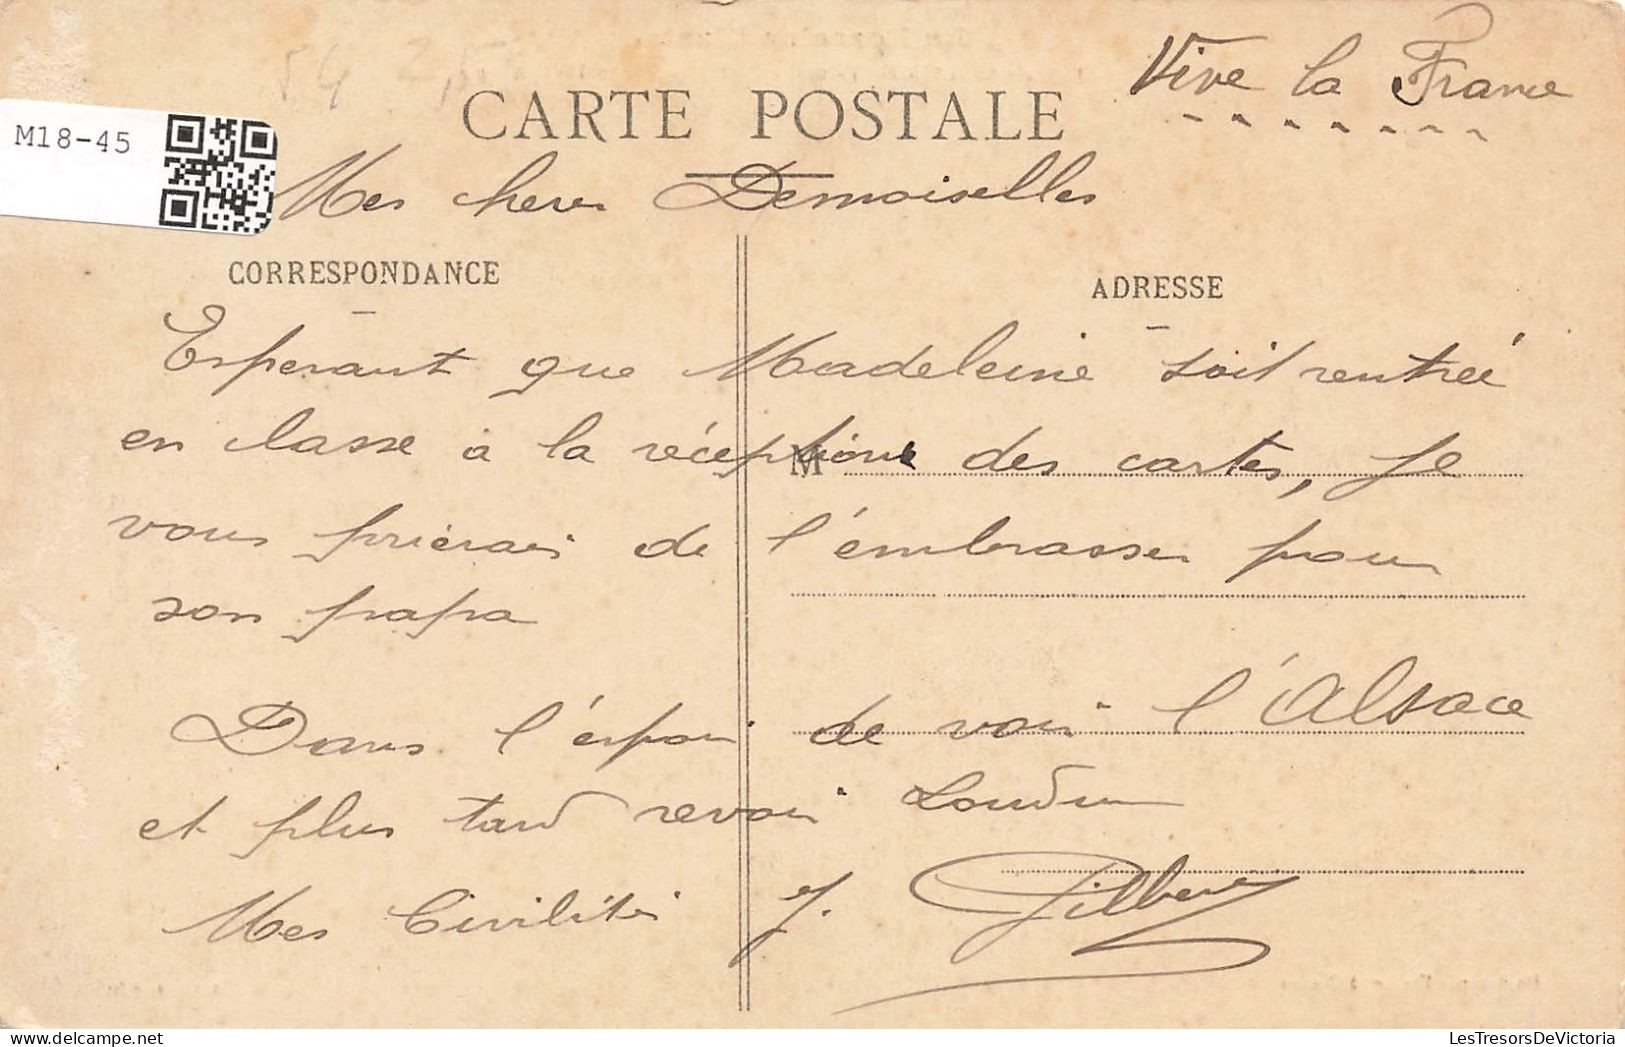 Vive la France
54
CARTE POSTALE
M18-45
Mes cheres Demoiselles
CORRESPONDANCE
ADRESSE
Esperant que Madeleine soit rentrée
en classe a la réception des cartes, je
M
vous prierais de l'embrasser pour
son papa
Dans l'éspoir de voir l'Alsace
et plus tard revoir Loudun
Mes Civilités J. Gilbert
LesTresorsDeVictoria